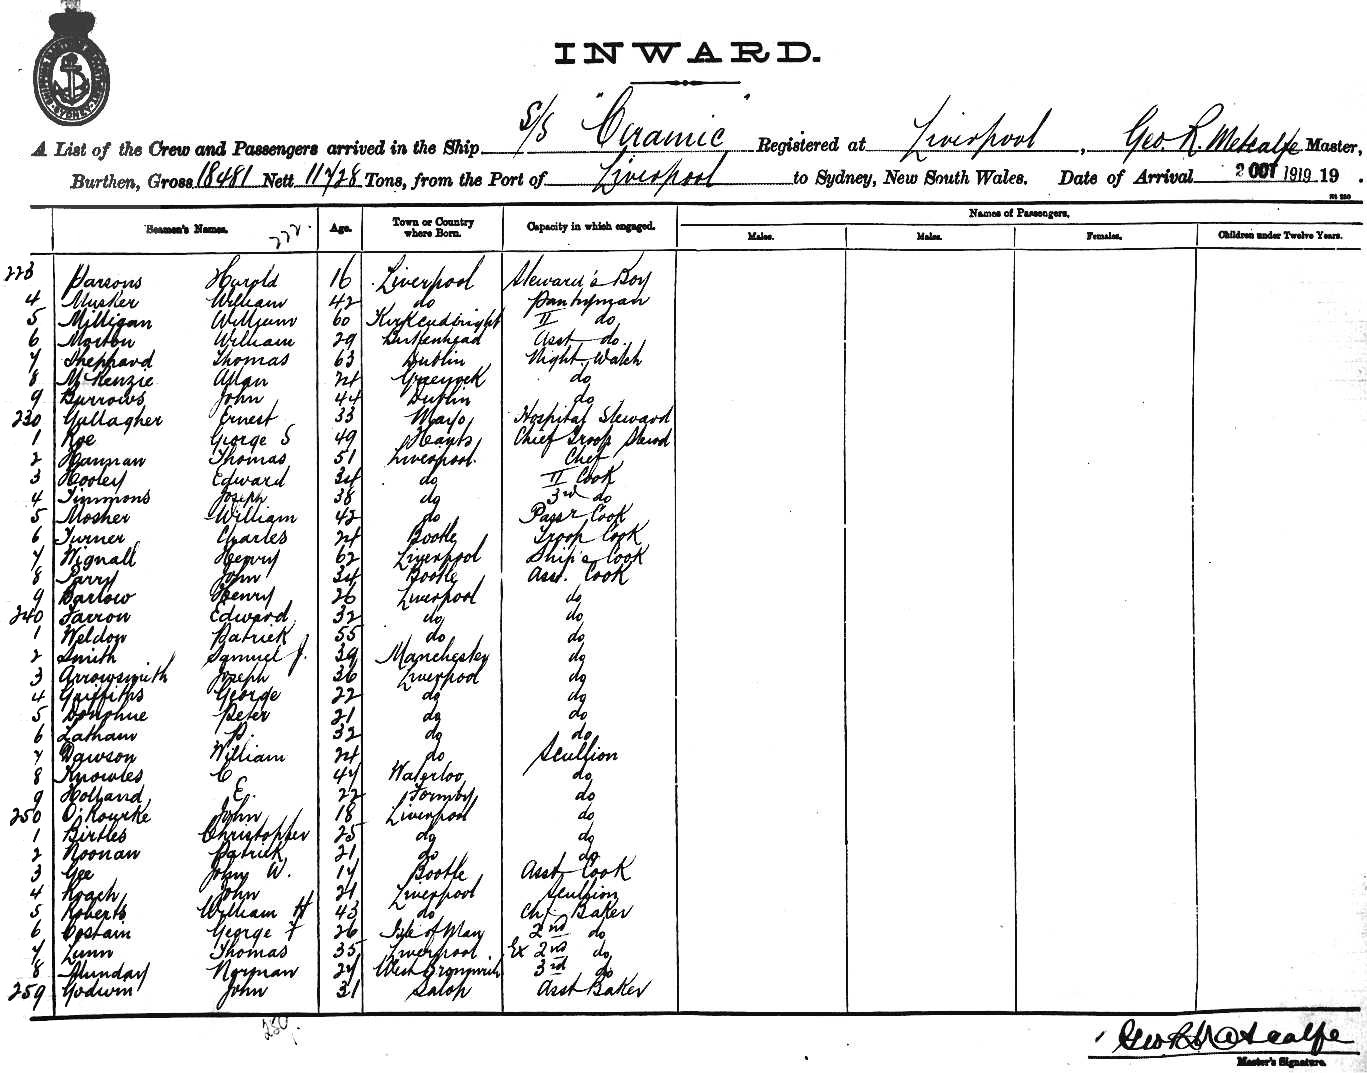 INWARD.
A List of the Crew and Passengers arrived in the Ship S/S "Ceramic" Registered at Liverpool, Geo. R. Metcalfe Master,
Burthen, Gross 18481 Nett 11728 Tons, from the Port of Liverpool to Sydney, New South Wales. Date of Arrival 2 OCT 1919 19 .
Names of Passengers.
Seamen's Names. 222. Age. Town or Country where Born. Capacity in which engaged. Males. Males. Females. Children under Twelve Years.
223 Parsons Harold 16 Liverpool Steward's Boy
4 Musker William 42 do Pantryman
5 Milligan William 60 Kirkcudbright II do
6 Morton William 29 Birkenhead Asst do.
7 Sheppard Thomas 63 Dublin Night Watch
8 McKenzie Allan 24 Greenock do
9 Burrows John 44 Dublin do
230 Gallagher Ernest 33 Mayo Hospital Steward
1 Roe George S 49 Hants Chief Troop Stwd
2 Hannan Thomas 51 Liverpool. Chef
3 Hooley Edward 34 do II Cook
4 Timmons Joseph 38 do 3rd do
5 Mosher William 42 do Passr Cook
6 Turner Charles 24 Bootle Troop Cook
7 Wignall Henry 62 Liverpool Ship's Cook
8 Parry John 34 Bootle Asst. Cook
9 Barlow Henry 26 Liverpool do
240 Farron Edward 32 do do
1 Weldon Patrick 55 do do
2 Smith Samuel J. 39 Manchester do
3 Arrowsmith Joseph 36 Liverpool do
4 Griffiths George 22 do do
5 Donohue Peter 21 do do
6 Latham P. 32 do do
7 Dawson William 24 do Scullion
8 Knowles C 47 Waterloo do
9 Holland E. 22 Formby do
250 O'Rourke John 18 Liverpool do
1 Birtles Christopher 25 do do
2 Noonan Patrick 21 do do
3 Gee John W. 17 Bootle Asst Cook
4 Roach John 21 Liverpool Scullion
5 Roberts William H 43 do Ch. Baker
6 Costain George F 26 Isle of Man 2nd do
7 Lunn Thomas 35 Liverpool. Ex 2nd do
8 Munday Norman 27 West Bromwich 3rd do
259 Godwin John 31 Salop Asst Baker
Geo R Metcalfe
Master's Signature.